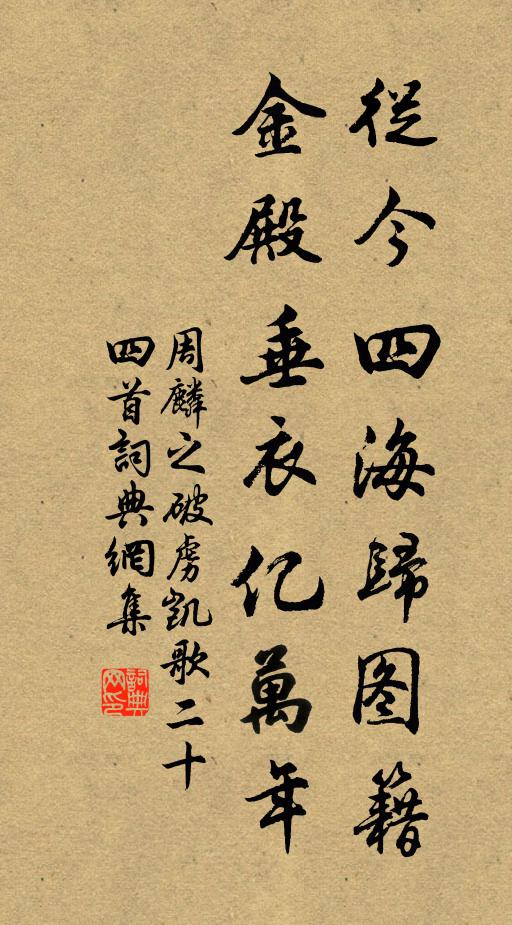 從今四海歸图籍
金殿垂衣亿萬年
周麟之破虜凯歌二十
四首詞典網集
詞典
网印